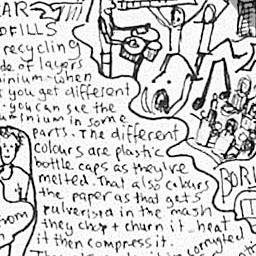 EAR
DFILLS
recycling
de of layers
inium - when
you get different
you can see the
minium in some
parts. The different
colours are plastic
bottle caps as they've
melted. That also colours
the paper as that gets
pulverised in the mash
they chop + churn it - heat
it then compress it.
corrugated
from
BORI